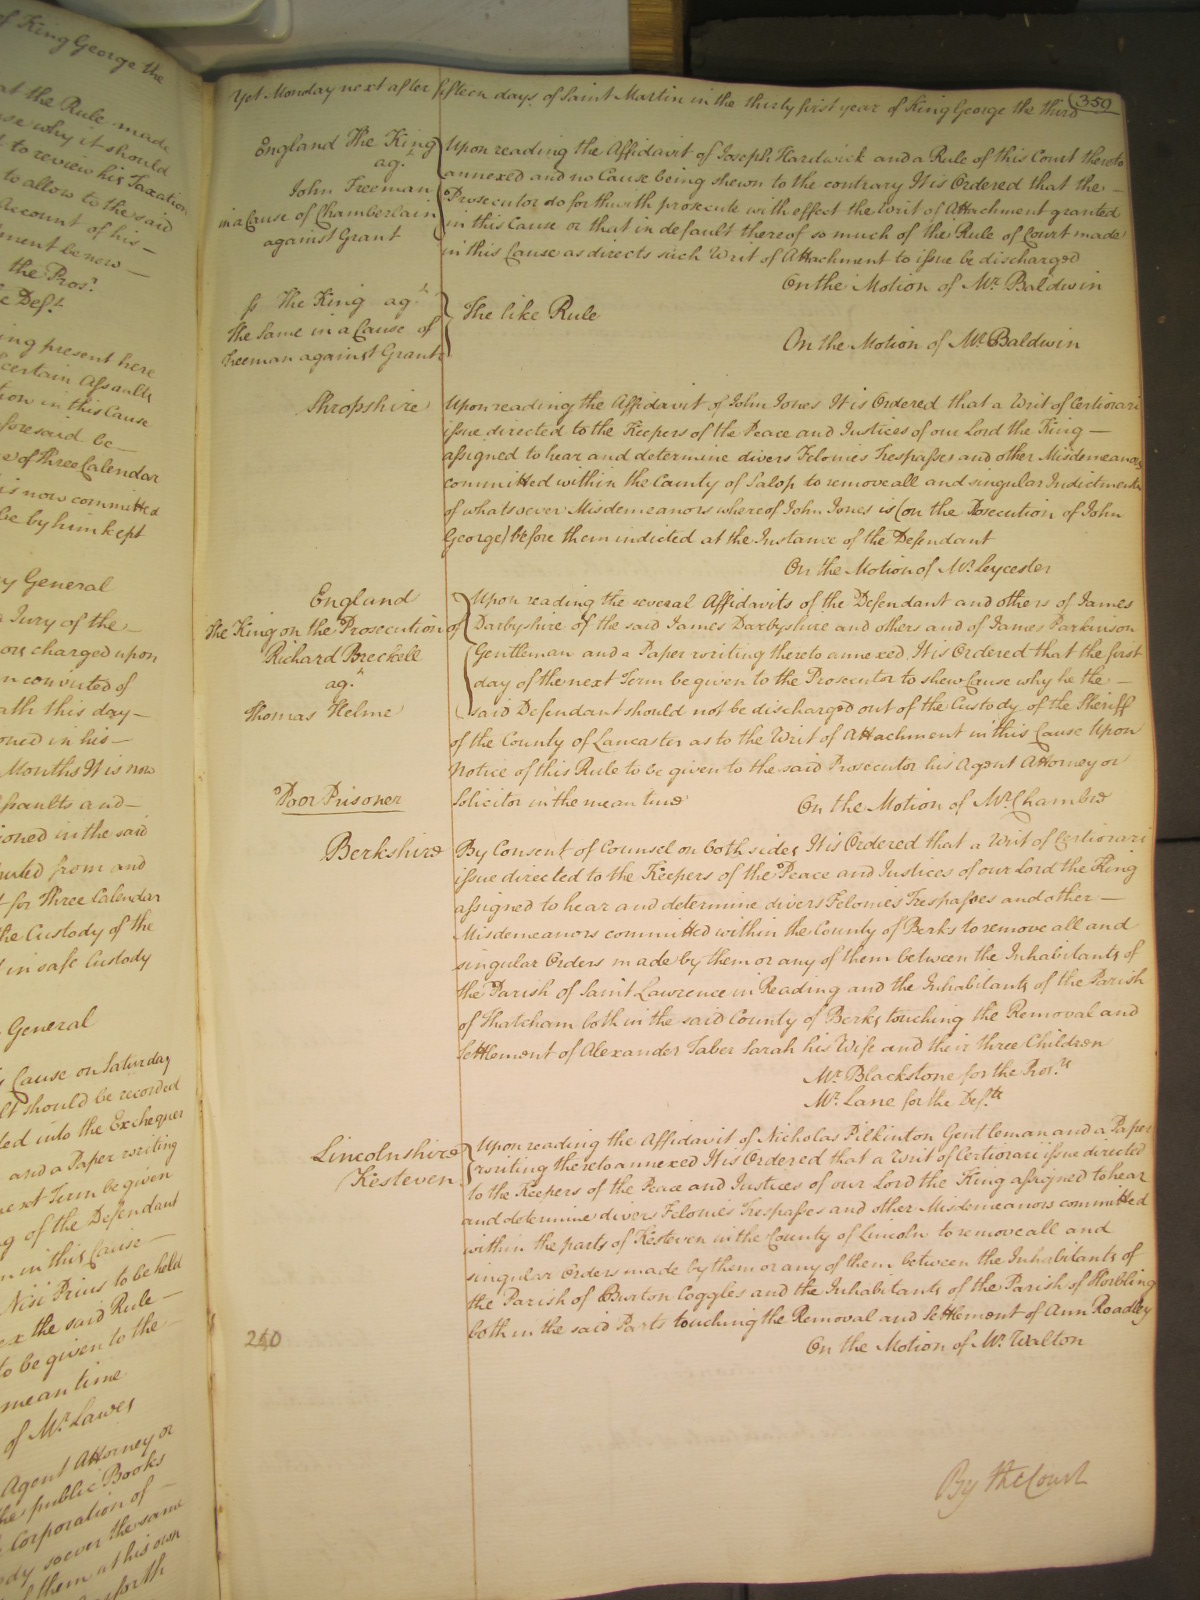 of King George the
at the Rule made
se why it should
to review his Taxation
to allow to the said
Account of his –
ment be now –
the Pros.r
Def.t
ing present here
certain Assaults
tion in this Cause
foresaid be
e of three Calendar
is now committed
be by him kept
y General
a Jury of the –
charged upon
n convicted of
ath this day –
oned in his –
Months It is now
ssaults and –
ioned in the said
from and
for Three Calendar
the Custody of the
in safe Custody
General
Cause on Saturday
lt should be recorded
ted into the Exchequer
and a Paper writing
next Term be given
g of the Defendant
n in this Cause –
Nisi Prius to be held
the said Rule –
to be given to the
mean time
of Mr. Lawes
Agent Attorney or
the public Books
Corporation of –
soever the same
them at his own
forth
Yet Monday next after fifteen days of Saint Martin in the thirty first year of King George the third
350
England The King
ag.t
John Freeman
in a Cause of Chamberlain
against Grant
Upon reading the Affidavit of Joseph Hardwick and a Rule of this Court thereto
annexed and no Cause being shewn to the contrary It is Ordered that the –
Prosecutor do forthwith prosecute with effect the Writ of Attachment granted
in this Cause or that in default thereof so much of the Rule of Court made
in this Cause as directs such Writ of Attachment to issue be discharged
On the Motion of Mr. Baldwin
ss The King ag.t
the Same in a Cause of
Freeman against Grant
The like Rule
On the Motion of Mr. Baldwin
Shropshire
Upon reading the Affidavit of John Jones It is Ordered that a Writ of Certiorari
issue directed to the Keepers of the Peace and Justices of our Lord the King –
assigned to hear and determine divers Felonies Trespasses and other Misdemeanors
committed within the County of Salop to remove all and singular Indictments
of whatsoever Misdemeanors whereof John Jones is (on the Prosecution of John
George) before them indicted at the Instance of the Defendant
On the Motion of Mr. Leycester
England
The King on the Prosecution of
Richard Breckell
ag.t
Thomas Helme
Poor Prisoner
Upon reading the several Affidavits of the Defendant and others of James
Darbyshire of the said James Darbyshire and others and of James Parkinson
Gentleman and a Paper writing thereto annexed It is Ordered that the first
day of the next Term be given to the Prosecutor to shew Cause why he the –
said Defendant should not be discharged out of the Custody of the Sheriff
of the County of Lancaster as to the Writ of Attachment in this Cause Upon
Notice of this Rule to be given to the said Prosecutor his Agent Attorney or
Solicitor in the mean time
On the Motion of Mr. Chambre
Berkshire
By Consent of Counsel on both sides It is Ordered that a Writ of Certiorari
issue directed to the Keepers of the Peace and Justices of our Lord the King
assigned to hear and determine divers Felonies Trespasses and other –
Misdemeanors committed within the County of Berks to remove all and
singular Orders made by them or any of them between the Inhabitants of
the Parish of Saint Lawrence in Reading and the Inhabitants of the Parish
of Thatcham both in the said County of Berks touching the Removal and
Settlement of Alexander Taber Sarah his Wife and their three Children
Mr. Blackstone for the Pros.rs
Mr. Lane for the Def.ts
Lincolnshire
Kesteven
Upon reading the Affidavit of Nicholas Pilkinton Gentleman and a Paper
writing thereto annexed It is Ordered that a Writ of Certiorari issue directed
to the Keepers of the Peace and Justices of our Lord the King assigned to hear
and determine divers Felonies Trespasses and other Misdemeanors committed
within the parts of Kesteven in the County of Lincoln to remove all and
singular Orders made by them or any of them between the Inhabitants of
the Parish of Burton Coggles and the Inhabitants of the Parish of Horbling
both in the said Parts touching the Removal and Settlement of Ann Roadley
On the Motion of Mr. Walton
By the Court